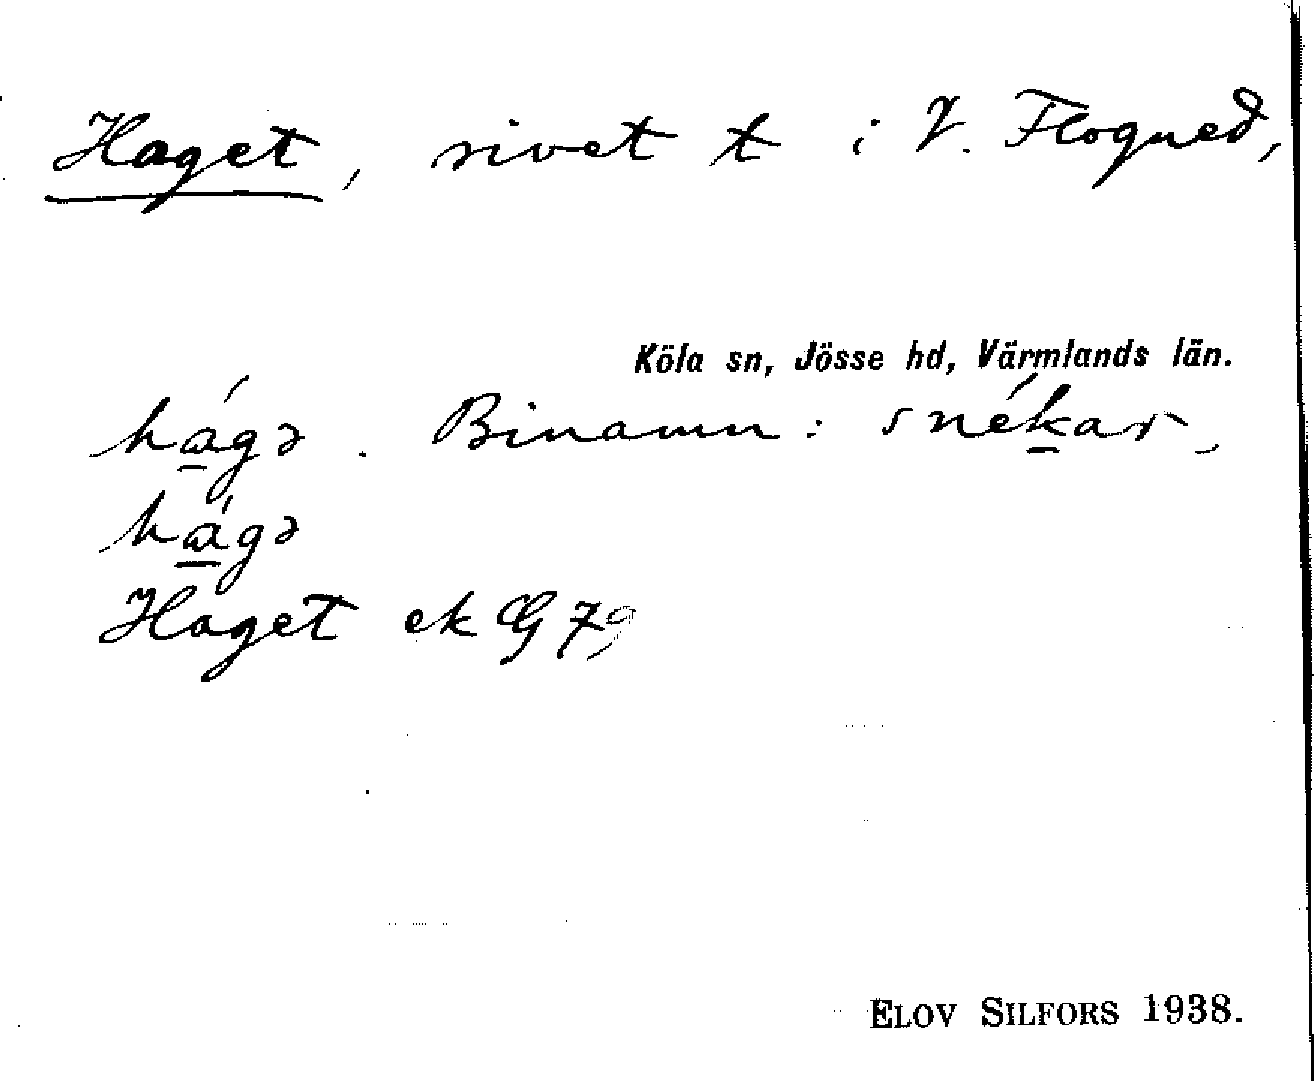 Haget, rivet t i V. Flogned,
Köla sn, Jösse hd, Värmlands län.
há̱gə. Binamn: snéḵar-
há̱gə
Haget ek G 79
ELOV SILFORS 1938.